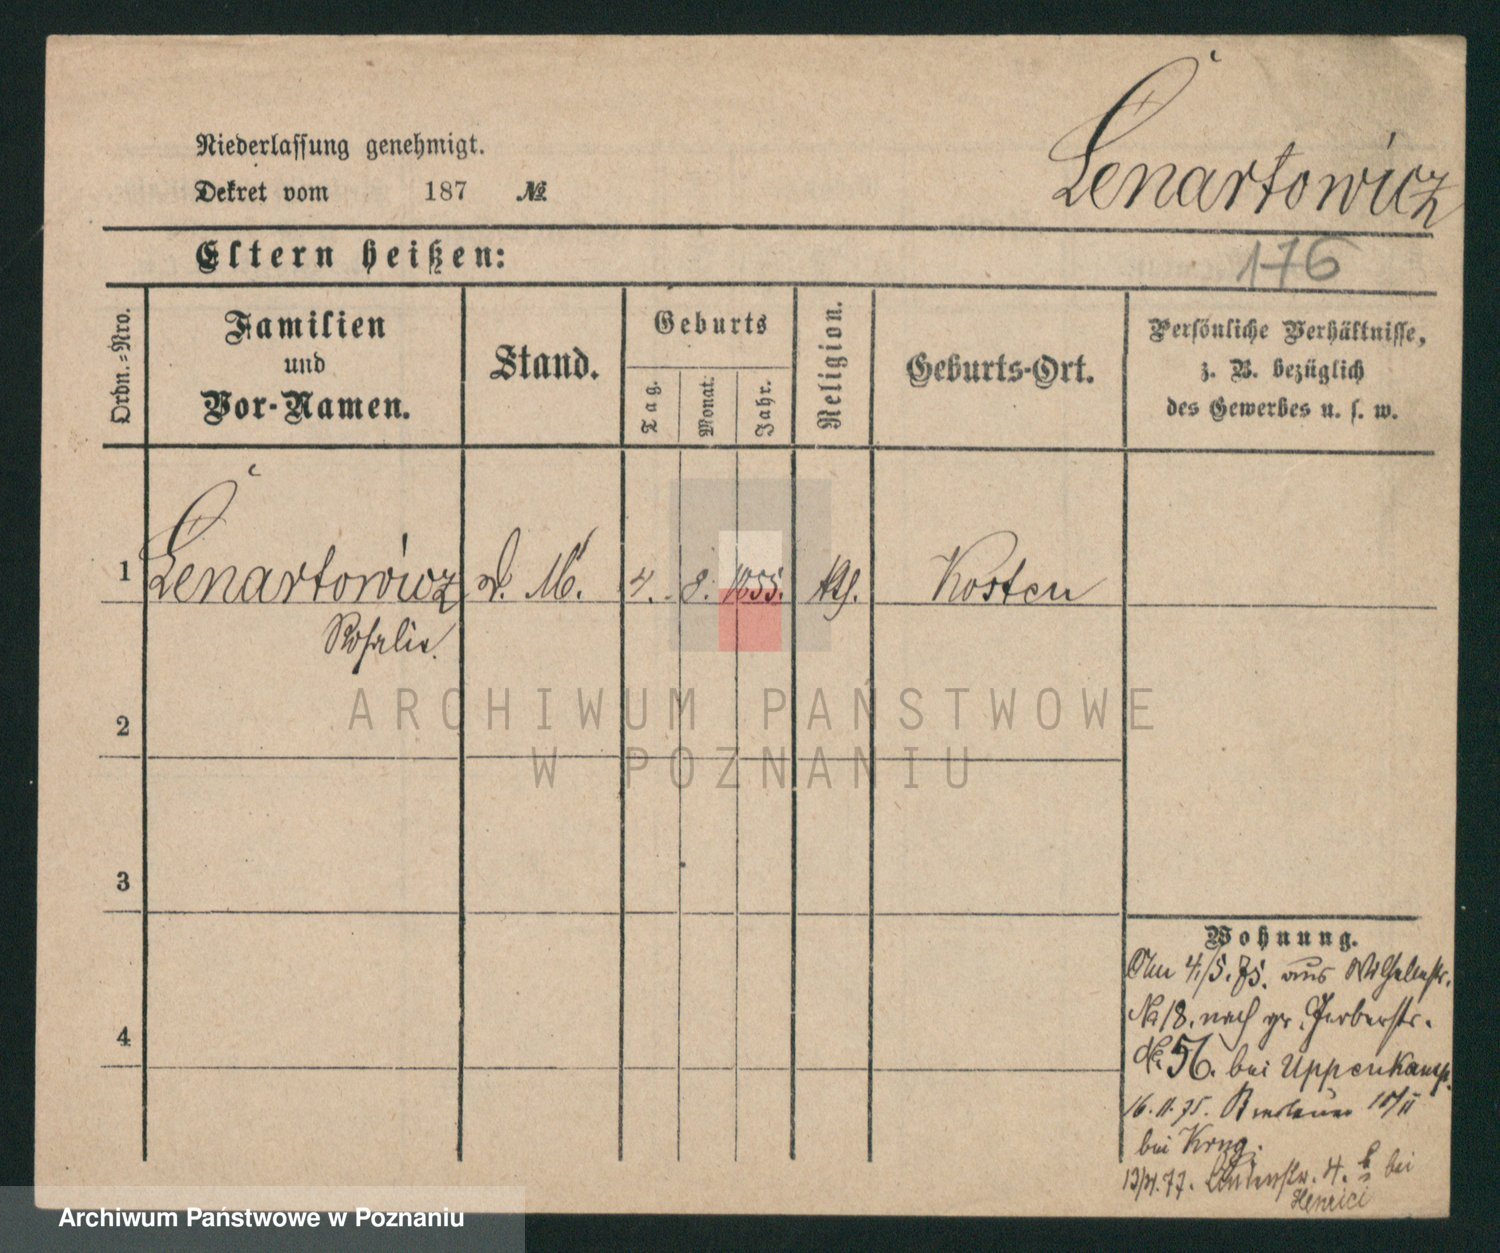 Lenartowicz
Niederlassung genehmigt.
Dekret vom 187 №
Eltern heißen:
176
Ordn.-Nro.
Familien
und
Vor-Namen.
Stand.
Geburts
Tag.
Monat.
Jahr.
Religion.
Geburts-Ort.
Persönliche Verhältnisse,
z. B. bezüglich
des Gewerbes u. s. w.
1 Lenartowicz d. M. 4. 8. 1855. kth. Kosten
Rosalie.
2
3
4
Wohnung.
Am 4/5. 75. aus Wilhelmstr.
No 18. nach gr. Gerberstr.
No. 56. bei Uppenkamp.
16. 11. 75. Breslauer 15/II
bei Krug.
77. 4. bei
Henrici
ARCHIWUM PAŃSTWOWE
W POZNANIU
Archiwum Państwowe w Poznaniu